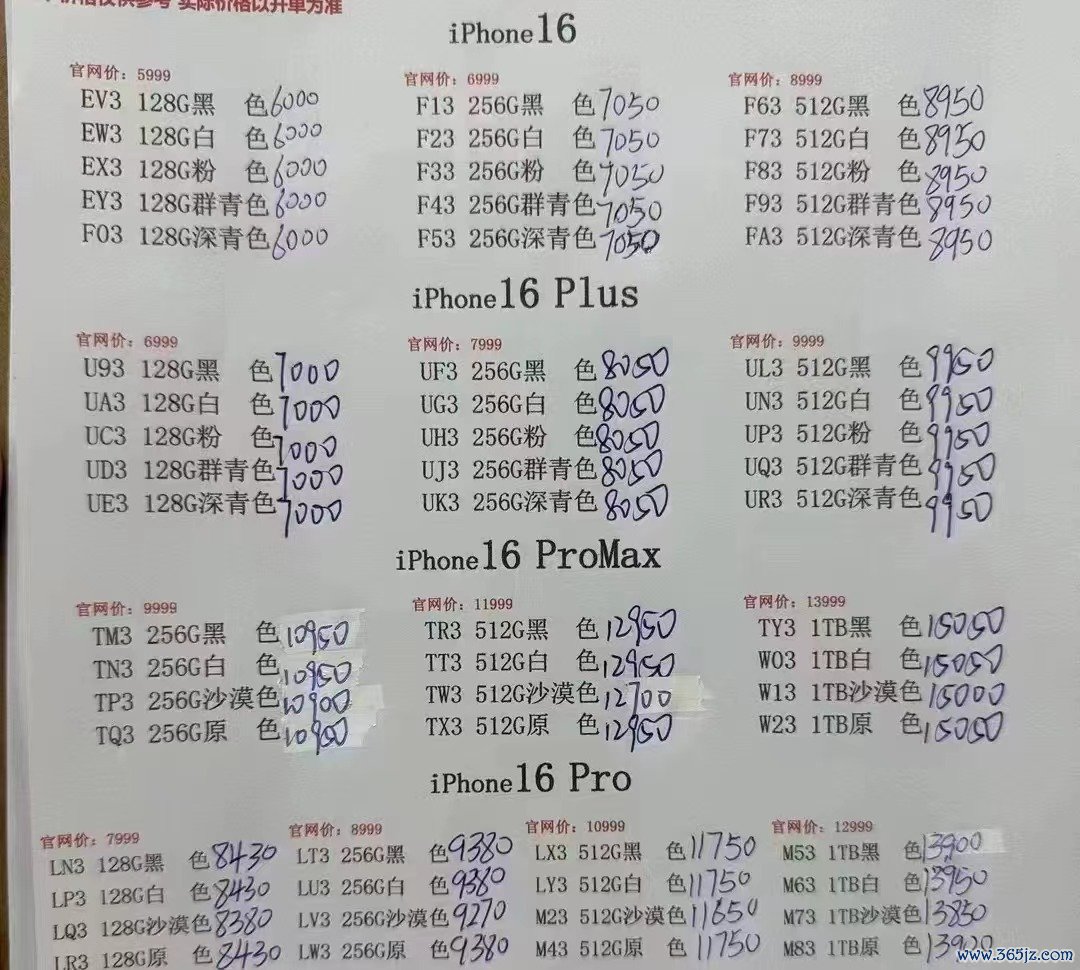 价格仅供参考 实际价格以开单为准
iPhone16
官网价：5999
EV3 128G黑 色6000
EW3 128G白 色6000
EX3 128G粉 色6000
EY3 128G群青色6000
F03 128G深青色6000
官网价：6999
F13 256G黑 色7050
F23 256G白 色7050
F33 256G粉 色7050
F43 256G群青色7050
F53 256G深青色7050
官网价：8999
F63 512G黑 色8950
F73 512G白 色8950
F83 512G粉 色8950
F93 512G群青色8950
FA3 512G深青色8950
iPhone16 Plus
官网价：6999
U93 128G黑 色7000
UA3 128G白 色7000
UC3 128G粉 色7000
UD3 128G群青色7000
UE3 128G深青色7000
官网价：7999
UF3 256G黑 色8050
UG3 256G白 色8050
UH3 256G粉 色8050
UJ3 256G群青色8050
UK3 256G深青色8050
官网价：9999
UL3 512G黑 色9950
UN3 512G白 色9950
UP3 512G粉 色9950
UQ3 512G群青色9950
UR3 512G深青色9950
iPhone16 ProMax
官网价：9999
TM3 256G黑 色10950
TN3 256G白 色10950
TP3 256G沙漠色10900
TQ3 256G原 色10950
官网价：11999
TR3 512G黑 色12950
TT3 512G白 色12950
TW3 512G沙漠色12700
TX3 512G原 色12950
官网价：13999
TY3 1TB黑 色15050
W03 1TB白 色15050
W13 1TB沙漠色15000
W23 1TB原 色15050
iPhone16 Pro
官网价：7999
LN3 128G黑 色8430
LP3 128G白 色8430
LQ3 128G沙漠色8380
LR3 128G原 色8430
官网价：8999
LT3 256G黑 色9380
LU3 256G白 色9380
LV3 256G沙漠色9270
LW3 256G原 色9380
官网价：10999
LX3 512G黑 色11750
LY3 512G白 色11750
M23 512G沙漠色11650
M43 512G原 色11750
官网价：12999
M53 1TB黑 色13900
M63 1TB白 色13950
M73 1TB沙漠色13850
M83 1TB原 色13900
www.365jz.com